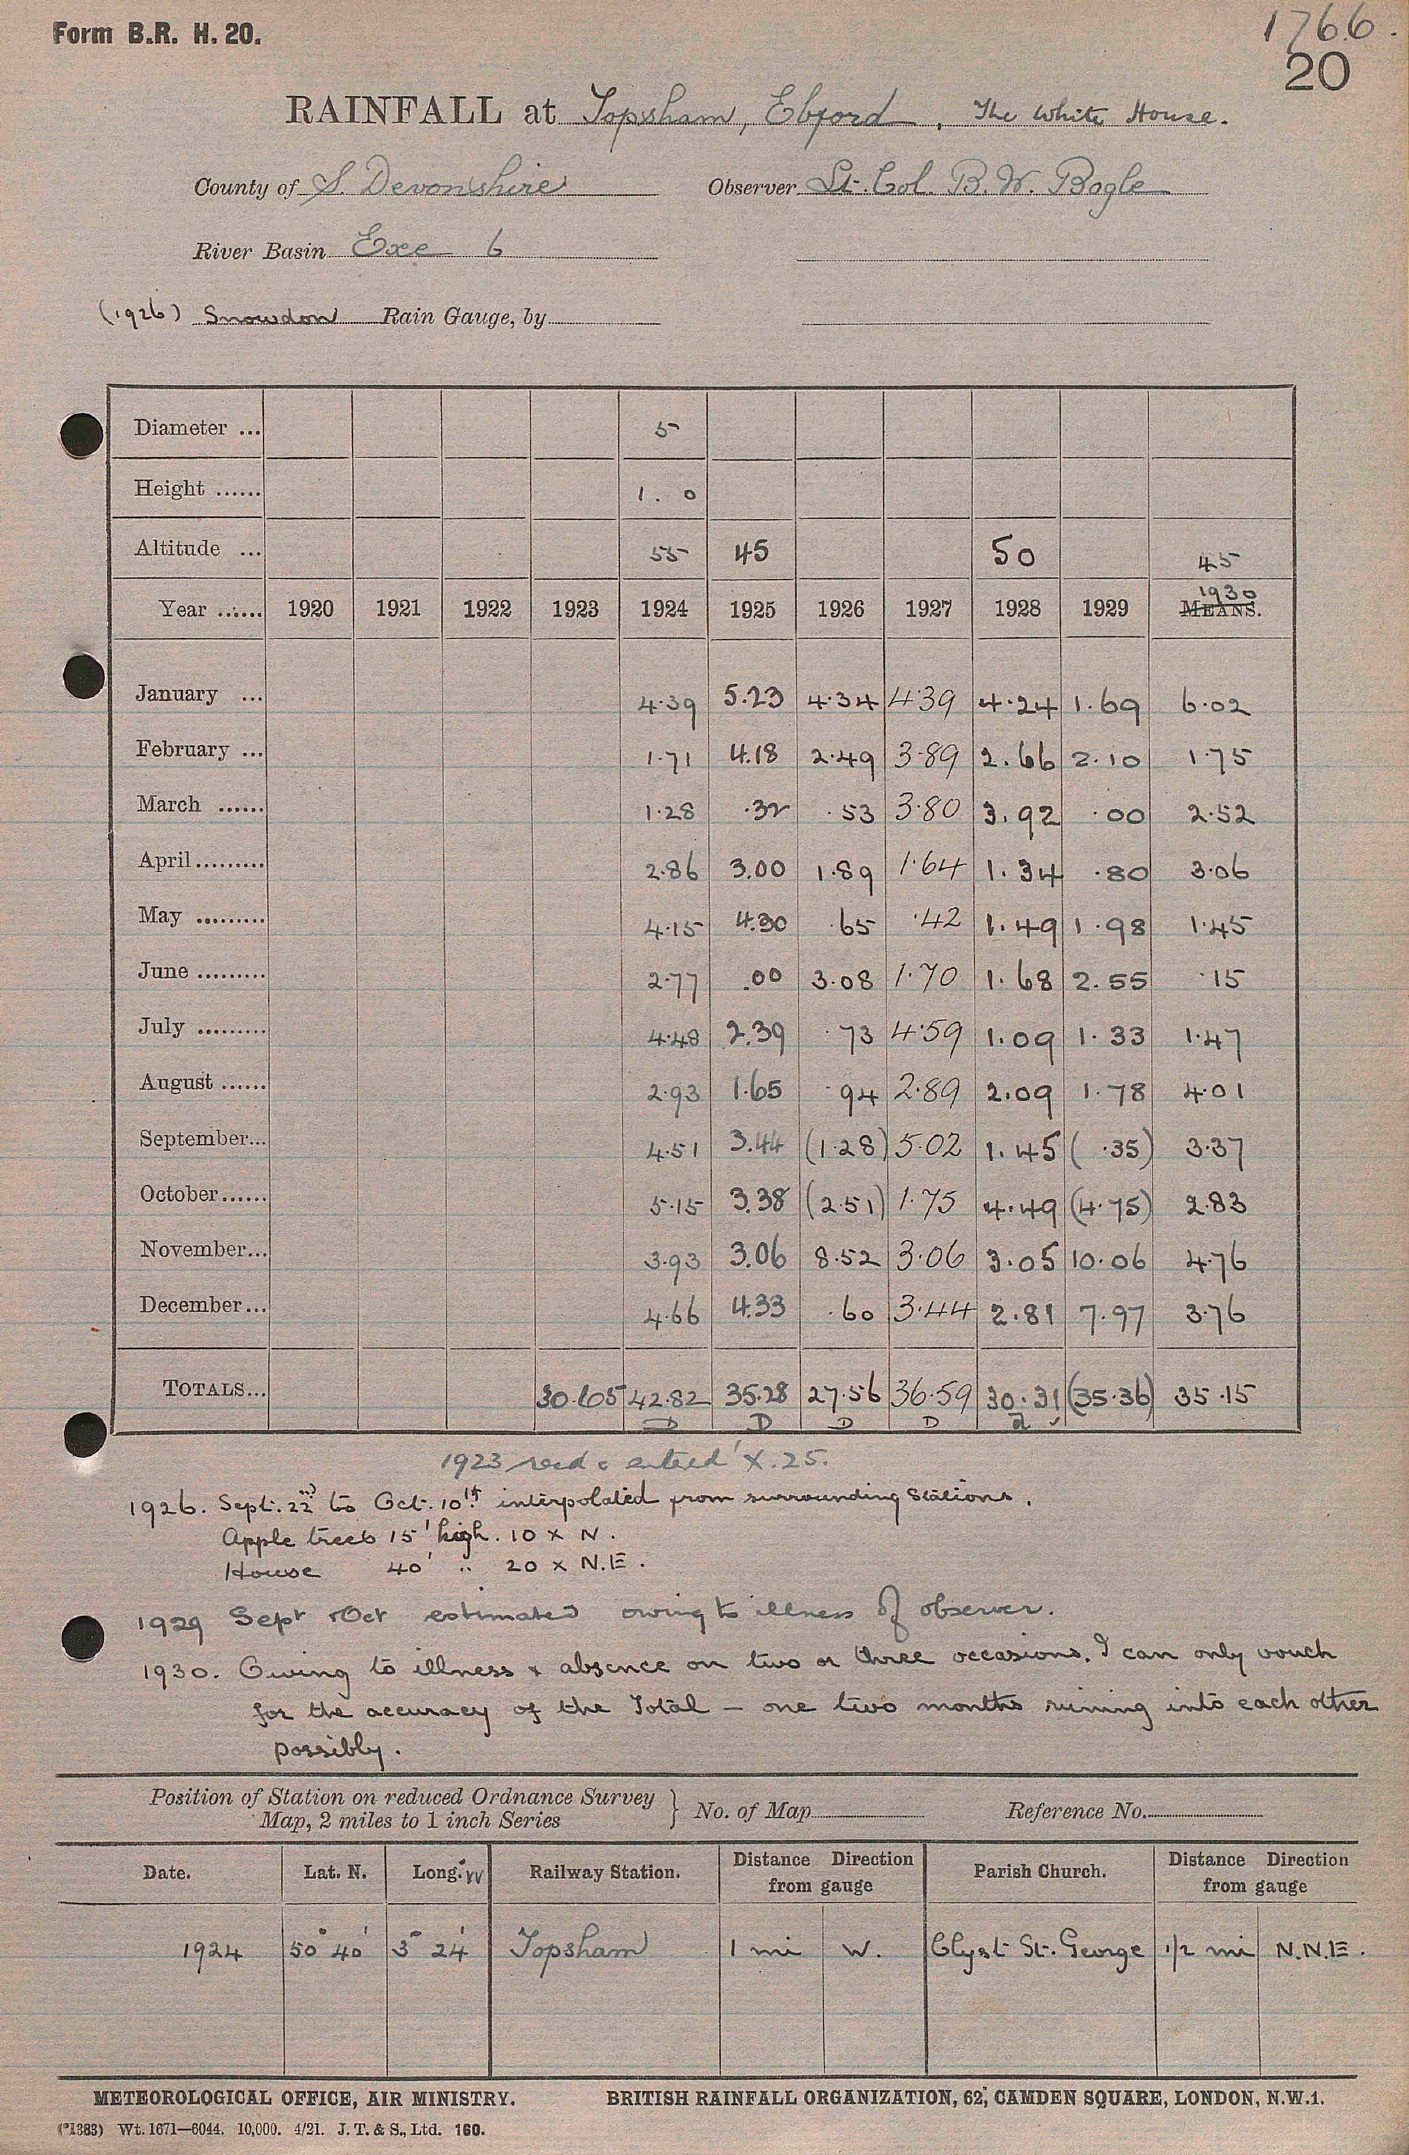 Form B.R. H. 20.
1766.
20
RAINFALL at Topsham, Ebford, The White House.
County of S. Devonshire Observer Lt. Col. B. W. Bogle
River Basin Exe 6
(1926) Snowdon Rain Gauge, by
Diameter ... 5
Height ...... 1. 0
Altitude ... 55 45 50 45
Year ...... 1920 1921 1922 1923 1924 1925 1926 1927 1928 1929 1930 MEANS.
January ... 4.39 5.23 4.34 4.39 4.24 1.69 6.02
February ... 1.71 4.18 2.49 3.89 2.66 2.10 1.75
March ...... 1.28 .32 .53 3.80 3.92 .00 2.52
April......... 2.86 3.00 1.89 1.64 1.34 .80 3.06
May ......... 4.15 4.30 .65 .42 1.49 1.98 1.45
June ......... 2.77 .00 3.08 1.70 1.68 2.55 .15
July ......... 4.48 2.39 .73 4.59 1.09 1.33 1.47
August ...... 2.93 1.65 .94 2.89 2.09 1.78 4.01
September... 4.51 3.44 (1.28) 5.02 1.45 ( .35) 3.37
October...... 5.15 3.38 (2.51) 1.75 4.49 (4.75) 2.83
November... 3.93 3.06 8.52 3.06 3.05 10.06 4.76
December... 4.66 4.33 .60 3.44 2.81 7.97 3.76
TOTALS... 30.605 42.82 35.28 27.56 36.59 30.31 (35.36) 35.15
D D D D
1923 recd & entered X. 25.
1926. Sept. 22nd to Oct. 10th interpolated from surrounding stations.
Apple trees 15' high. 10 x N.
House 40' " 20 x N.E.
1929 Sept & Oct estimated owing to illness of observer.
1930. Owing to illness & absence on two or three occasions, I can only vouch
for the accuracy of the Total – one two months running into each other
possibly.
Position of Station on reduced Ordnance Survey
Map, 2 miles to 1 inch Series } No. of Map Reference No.
Date. Lat. N. Long. W Railway Station. Distance Direction from gauge Parish Church. Distance Direction from gauge
1924 50° 40' 3° 24' Topsham 1 mi W. Clyst St. George 1/2 mi N.N.E.
METEOROLOGICAL OFFICE, AIR MINISTRY. BRITISH RAINFALL ORGANIZATION, 62, CAMDEN SQUARE, LONDON, N.W.1.
(*1383) Wt. 1671—6044. 10,000. 4/21. J. T. & S., Ltd. 160.